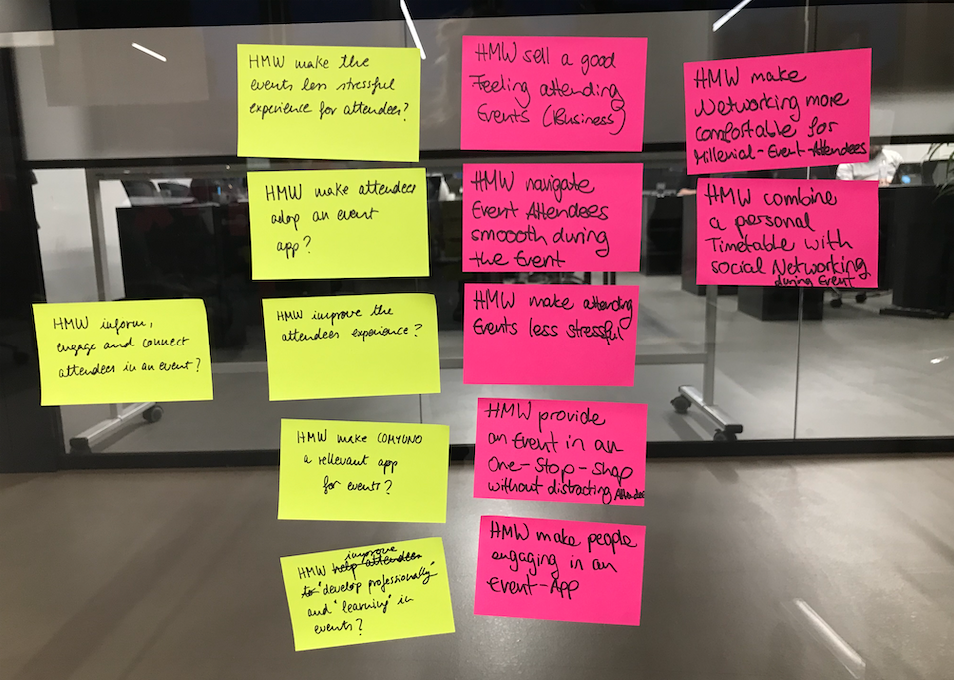 HMW inform,
engage and connect
attendees in an event?
HMW make the
events less stressful
experience for attendees?
HMW make attendees
adop an event
app?
HMW improve the
attendees experience?
HMW make COMYUNO
a rellevant app
for events?
improve
HMW help attendees
to "develop professionally"
and "learning" in
events?
HMW sell a good
Feeling attending
Events (Business)
HMW navigate
Event Attendees
smoooth during
the Event
HMW make attending
Events less stressful
HMW provide
an Event in an
One-Stop-Shop
without distracting Attendee
HMW make people
engaging in an
Event-App
HMW make
Networking more
comfortable for
Millenial-Event-Attendees
HMW combine
a personal
Timetable with
social Networking
during Event